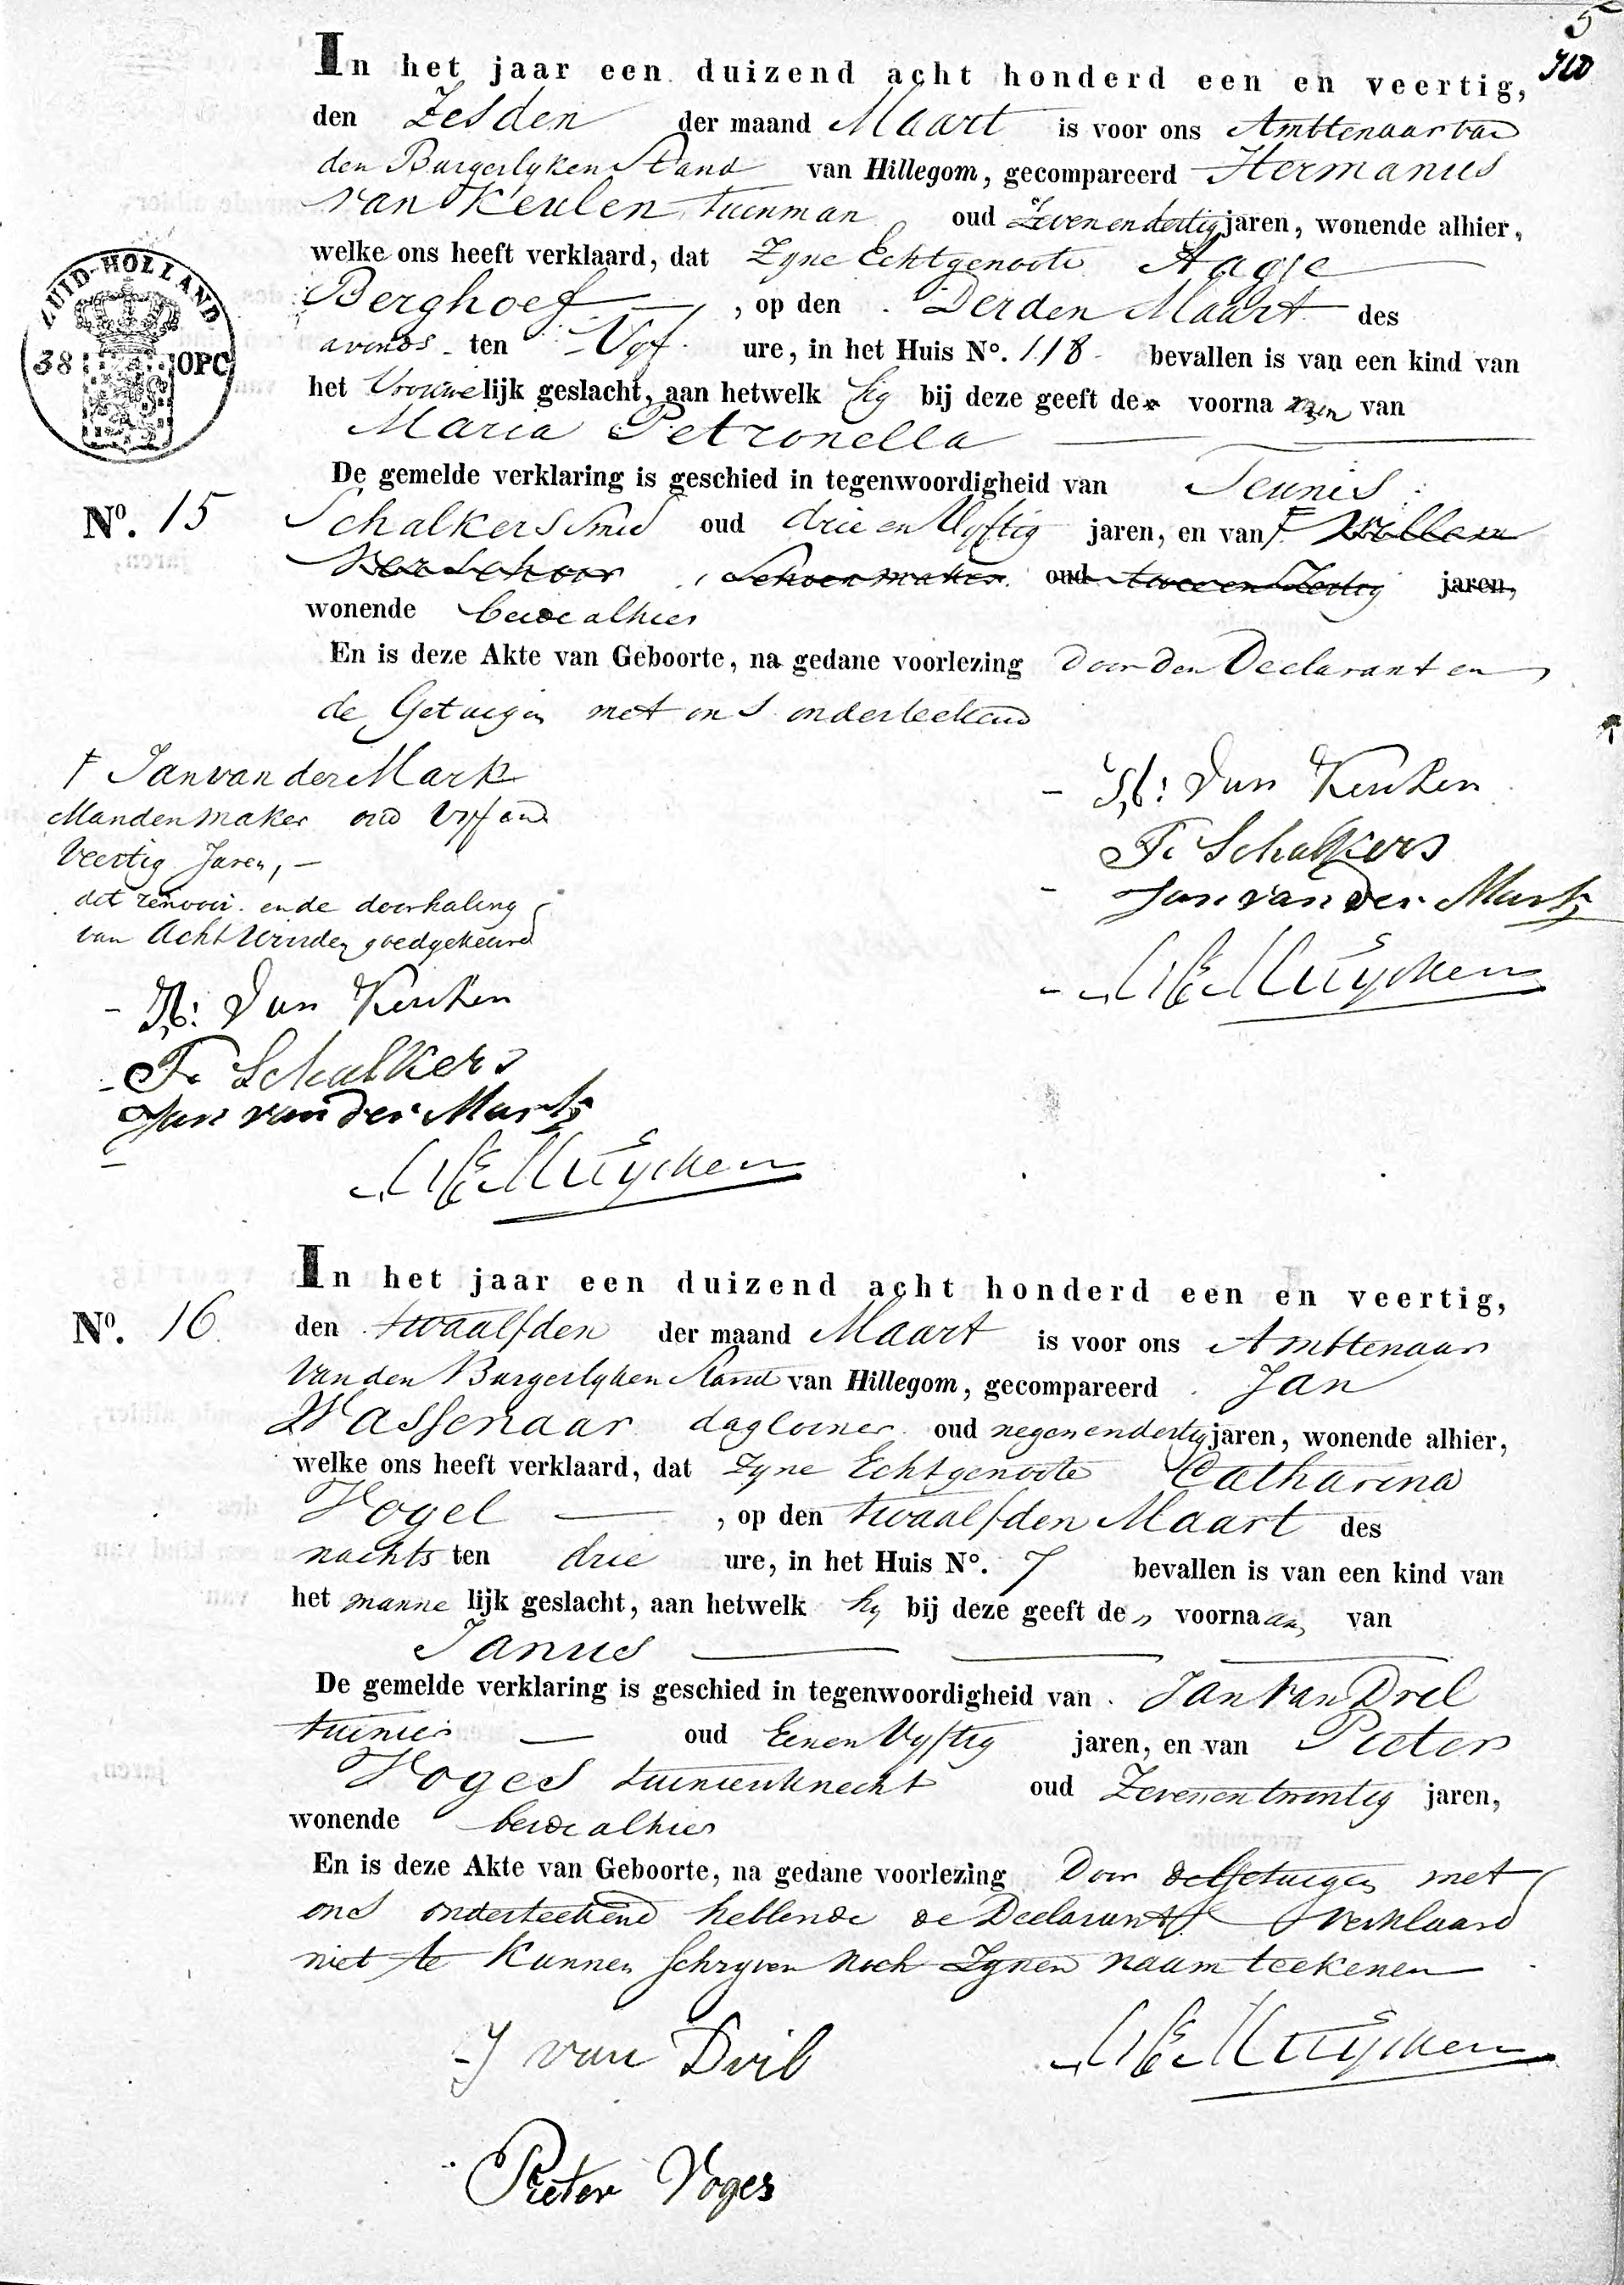 5
ZUID-HOLLAND
38 OPC
In het jaar een duizend acht honderd een en veertig,
den Zesden der maand Maart is voor ons Ambtenaar van
den Burgerlyken Stand van Hillegom, gecompareerd Hermanus
van Keulen tuinman oud Zevenendertig jaren, wonende alhier,
welke ons heeft verklaard, dat Zyne Echtgenoote Aagje
Berghoef, op den Derden Maart des
avonds ten Vyf ure, in het Huis No. 118 bevallen is van een kind van
het Vrouwelijk geslacht, aan hetwelk hy bij deze geeft de voornamen van
Maria Petronella
De gemelde verklaring is geschied in tegenwoordigheid van Teunis
No. 15
Schalkers Smid oud drie en Vyftig jaren, en van Ŧ Willem
Verschoor, Schoenmaker oud twee en Zestig jaren,
wonende beide alhier
En is deze Akte van Geboorte, na gedane voorlezing Door den Declarant en
de Getuigen met ons onderteekend
Ŧ Jan van der Mark
Mandenmaker oud Vyf en
Veertig Jaren, –
dit renvooi en de doorhaling
van Acht Woorden goedgekeurd
H: Van Keulen
T. Schalkers
Jan van der Mark
H: Van Keulen
T. Schalkers
Jan van der Mark
In het jaar een duizend acht honderd een en veertig,
No. 16
den twaalfden der maand Maart is voor ons Ambtenaar
Van den Burgerlyken Stand van Hillegom, gecompareerd Jan
Wassenaar dagloner oud negenendertig jaren, wonende alhier,
welke ons heeft verklaard, dat Zyne Echtgenoote Catharina
Vogel, op den twaalfden Maart des
nachts ten drie ure, in het Huis No. 7 bevallen is van een kind van
het mannelijk geslacht, aan hetwelk hy bij deze geeft den voornaam van
Janus
De gemelde verklaring is geschied in tegenwoordigheid van Jan van Dril
tuinier oud Eenen Vyftig jaren, en van Pieter
Voges tuiniersknecht oud Zevenentwintig jaren,
wonende beide alhier
En is deze Akte van Geboorte, na gedane voorlezing Door de Getuigen met
ons onderteekend hebbende de Declarant Verklaard
niet te Kunnen Schryven noch Zynen naam teekenen
J van Dril
Pieter Voges